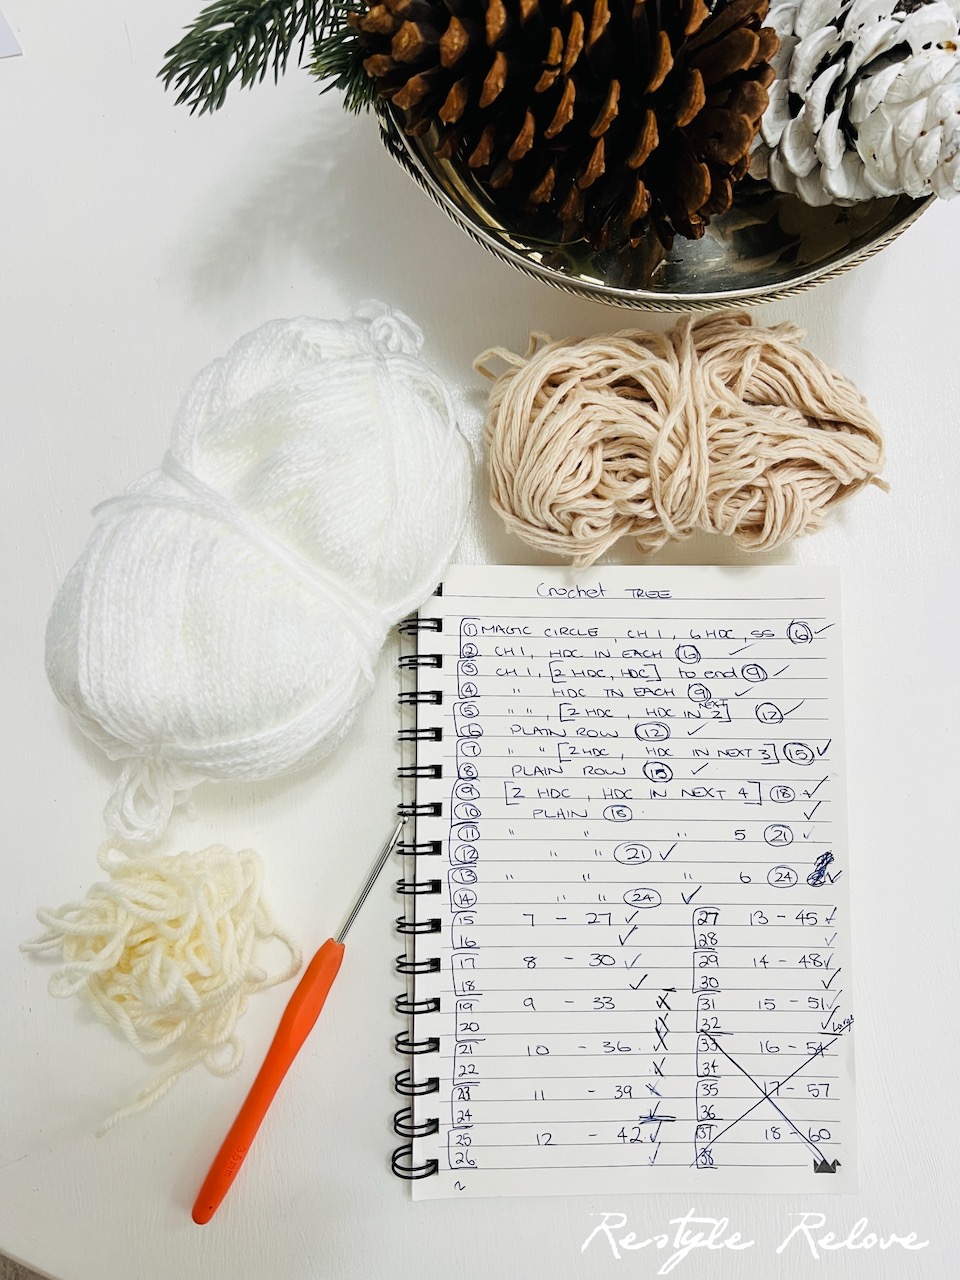 Crochet TREE
① MAGIC CIRCLE, CH 1, 6 HDC, SS ⑥ ✓
② CH 1, HDC IN EACH ⑥ ✓
③ CH 1, [2 HDC, HDC] to end ⑨ ✓
④ " HDC IN EACH ⑨ ✓
⑤ " ", [2 HDC, HDC IN NEXT 2] ⑫ ✓
⑥ PLAIN ROW ⑫ ✓
⑦ " " [2 HDC, HDC IN NEXT 3] ⑮ ✓
⑧ PLAIN ROW ⑮ ✓
⑨ [2 HDC, HDC IN NEXT 4] ⑱ ✓
⑩ PLAIN ⑱ ✓
⑪ " " " 5 ㉑ ✓
⑫ " " ㉑ ✓
⑬ " " " 6 ㉔ ✓
⑭ " " ㉔ ✓
15 7 - 27 ✓
16 ✓
17 8 - 30 ✓
18 ✓
19 9 - 33
20
21 10 - 36
22
23 11 - 39
24
25 12 - 42 ✓
26 ✓
27 13 - 45 ✓
28 ✓
29 14 - 48 ✓
30 ✓
31 15 - 51 ✓
32 ✓ Large
33 16 - 54
34
35 17 - 57
36
37 18 - 60
38
3.5mm
Restyle Relove